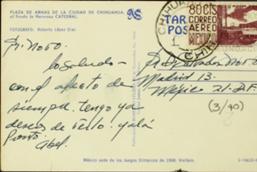 PLAZA DE ARMAS DE LA CIUDAD DE CHIHUAHUA,
al fondo la Hermosa CATEDRAL.
FOTOGRAFO: Roberto López Díaz
98
Sr. Novo.
lo saludo
con el afecto de
siempre. tengo ya
deseo de verlo. y será
pronto.
TAR
POS
80 CTS
CORREO
AEREO
MEXICO
Salvador Novo
Madrid 13.
México 21. D.F.
(3/40)
México sede de los Juegos Olímpicos de 1968. Visítelo.